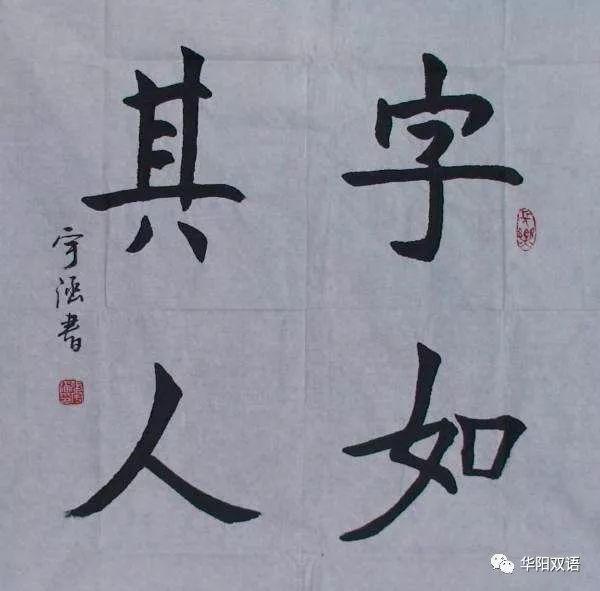 字如
其人
宇涵書
华阳双语